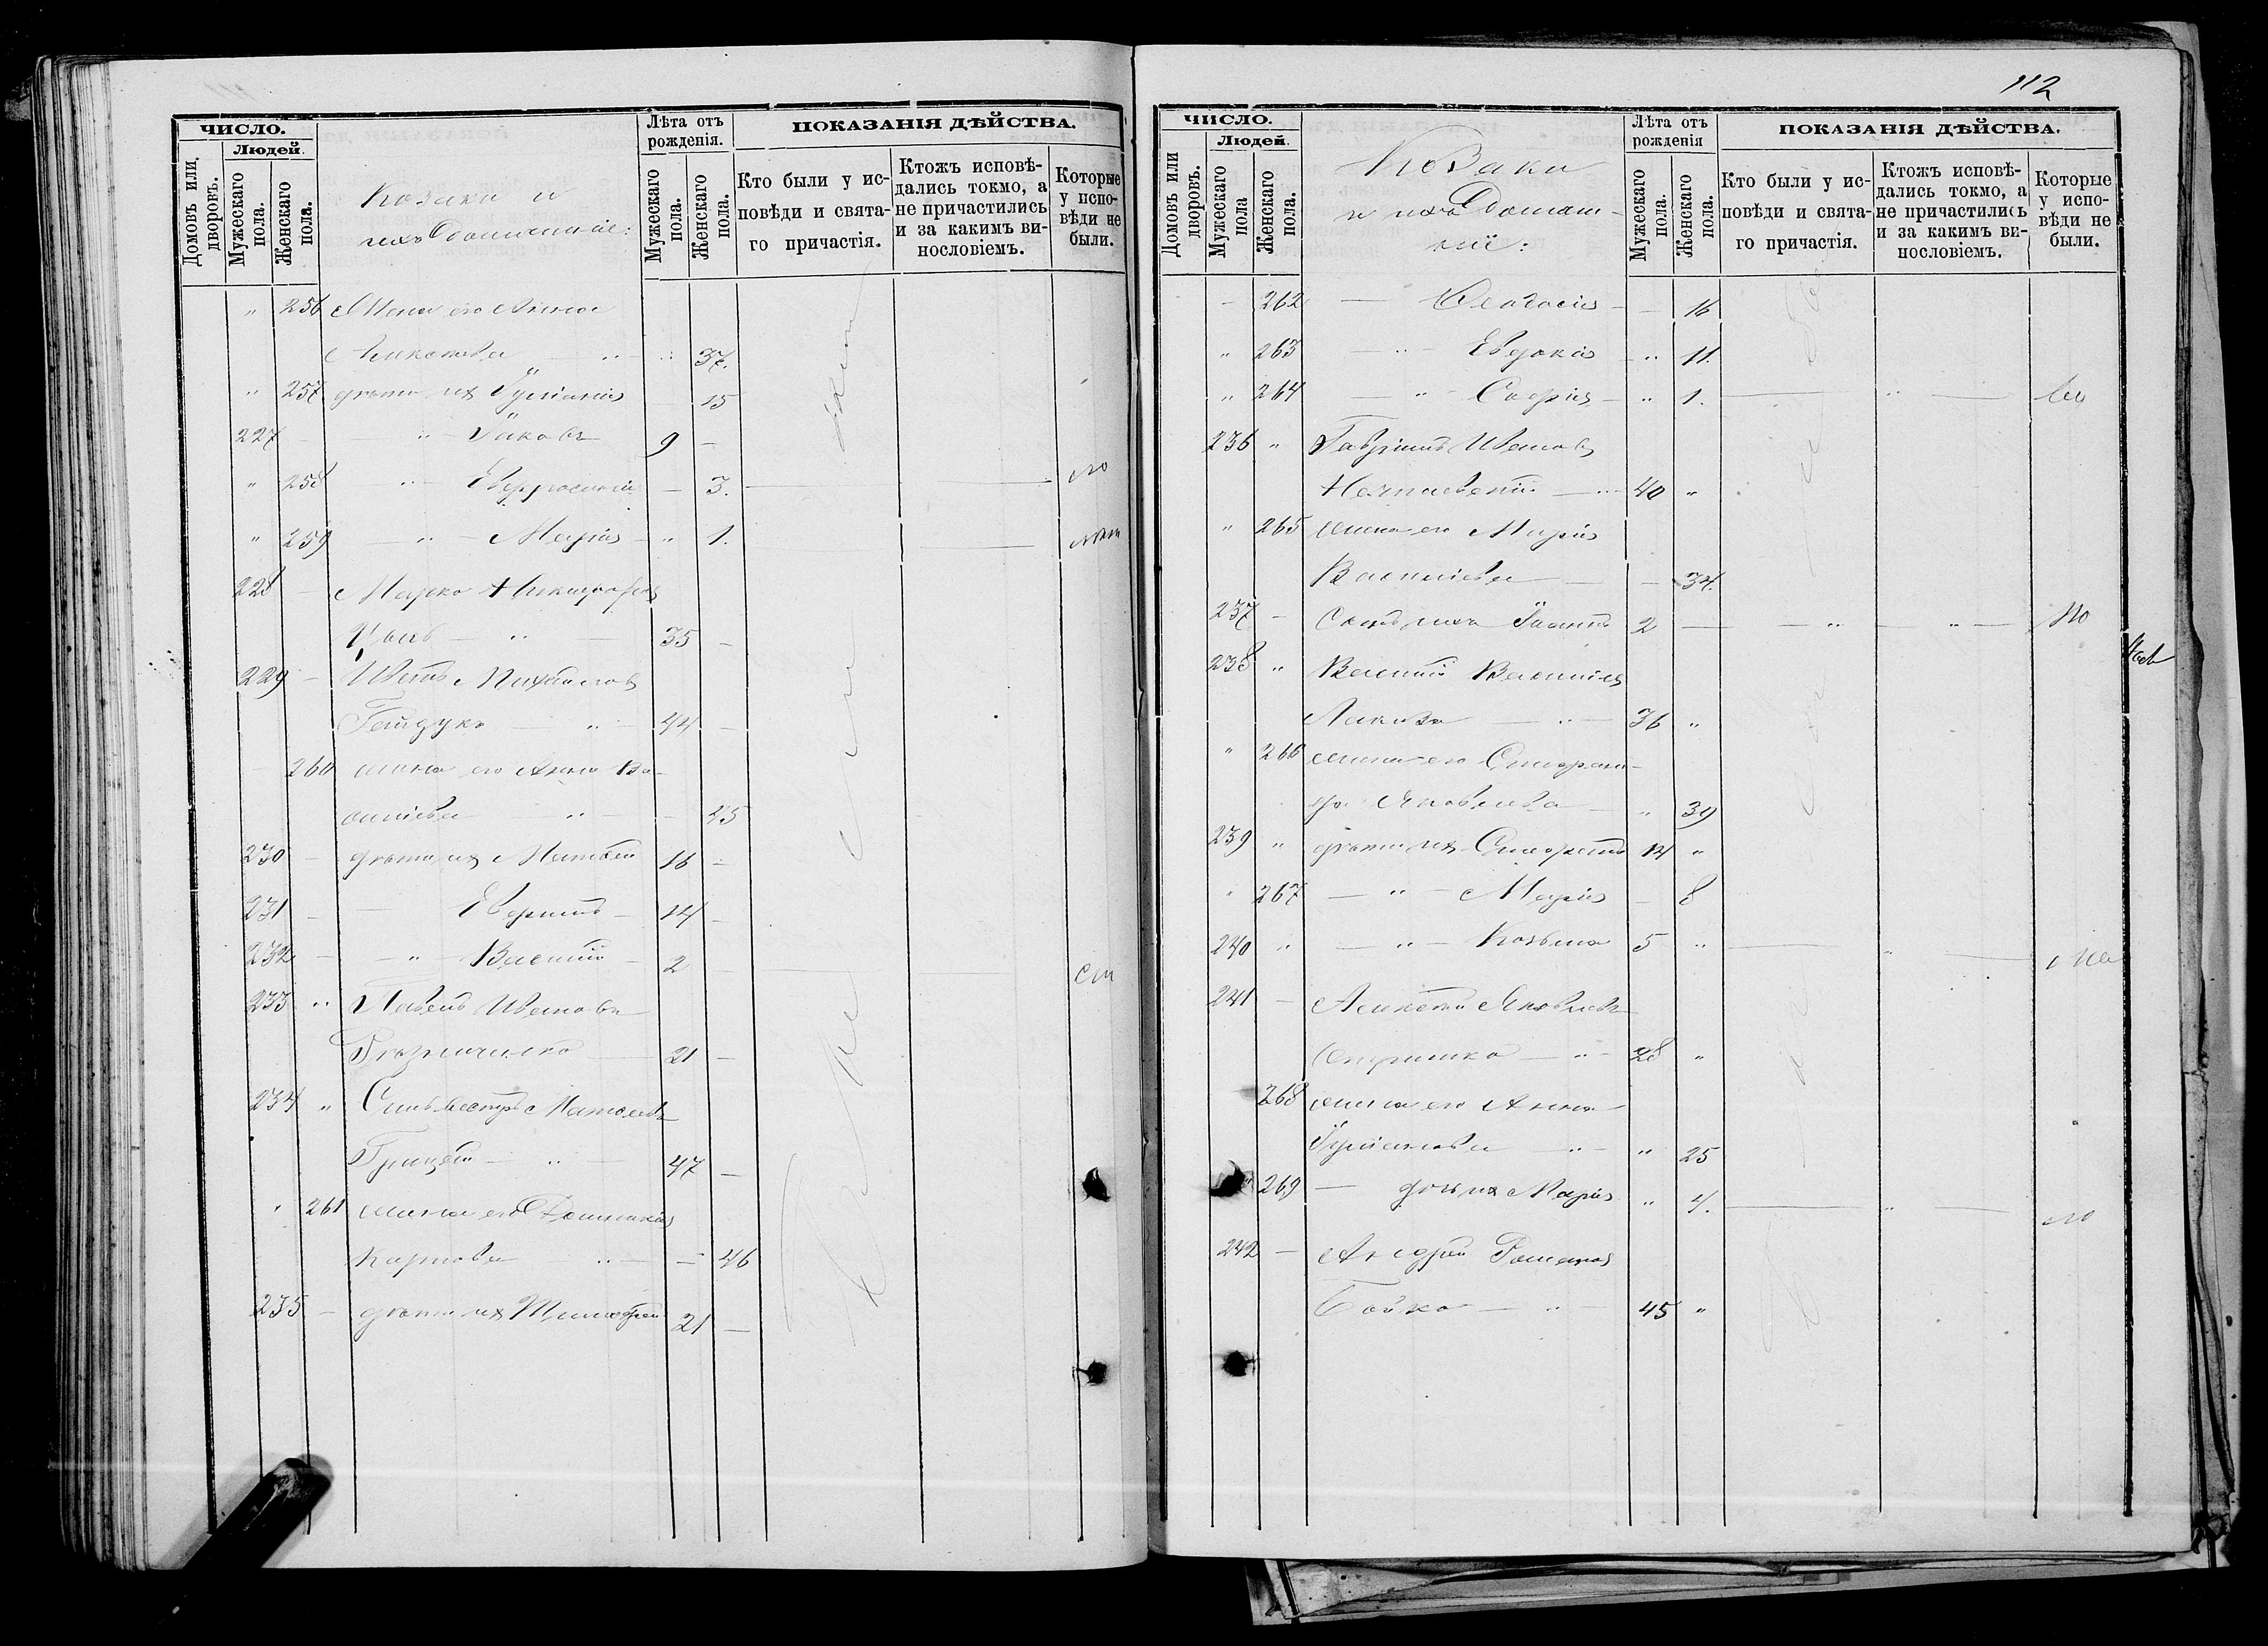 112
ЧИСЛО.
Людей.
Домовъ или дворовъ.
Мужескаго пола.
Женскаго пола.
Козаки и
ихъ домашніе:
Лѣта отъ рожденія.
Мужескаго пола.
Женскаго пола.
ПОКАЗАНІЯ ДѢЙСТВА.
Кто были у исповѣди и святаго причастія.
Ктожъ исповѣдались токмо, а не причастились и за какимъ винословіемъ.
Которые у исповѣди не были.
" 256 Жена его Анна
37.
" 257 дѣти их Іуліанія 15
227 - " - Іаковъ 9 -
" 258 " - Евфросинія - 3.
" 259 - " - Марія - " 1.
228 - Марко Никифоров
35 -
229 - Иванъ Михайлов
Гайдукъ - " - 44 -
260 жена его Анна Ва-
силіева " - - 45
230 - дѣти их Матѳей 16 -
231 - - Евфимъ - 14 -
232 - - " - Василій - 2
233 " Павелъ Ивановъ
21 -
234 " Сильвестръ Матѳеевъ
Грицай - " - 47 -
" 261 жена его Домникія
Карпова " - - 46
235 - дѣти их Тимоѳей 21 -
ЧИСЛО.
Людей.
Домовъ или дворовъ.
Мужескаго пола
Женскаго пола.
Козаки
и ихъ Домаш-
ніе:
Лѣта отъ рожденія
Мужескаго пола.
Женскаго пола.
ПОКАЗАНІЯ ДѢЙСТВА.
Кто были у исповѣди и святаго причастія.
Ктожъ исповѣдались токмо, а не причастились и за какимъ винословіемъ.
Которые у исповѣди не были.
- 262 - Ѳеодосія - - 16
" 263 - " - Евдокія - " 11.
" 264 - " - Софія - " 1.
236 " Гавріилъ Иванов
40 "
" 265 жена его Марія
Василіева - - 34.
237 - Сынъ ихъ Іоаннъ 2 -
238 " Василій Василіев
- " - 36 "
" 266 жена его Стефани-
да Яковлева - " 39
239 " дѣти их Стефанъ 14 "
" 267 - " - Марія - 8
240 " - " - Козьма 5 "
241 - Алексѣй Яковлевъ
- " - 28 "
268 жена его Анна
- " - " 25
" 269 - дочь их Марія " 4.
242 - Андрей Романов
Бойко - " - 45 "